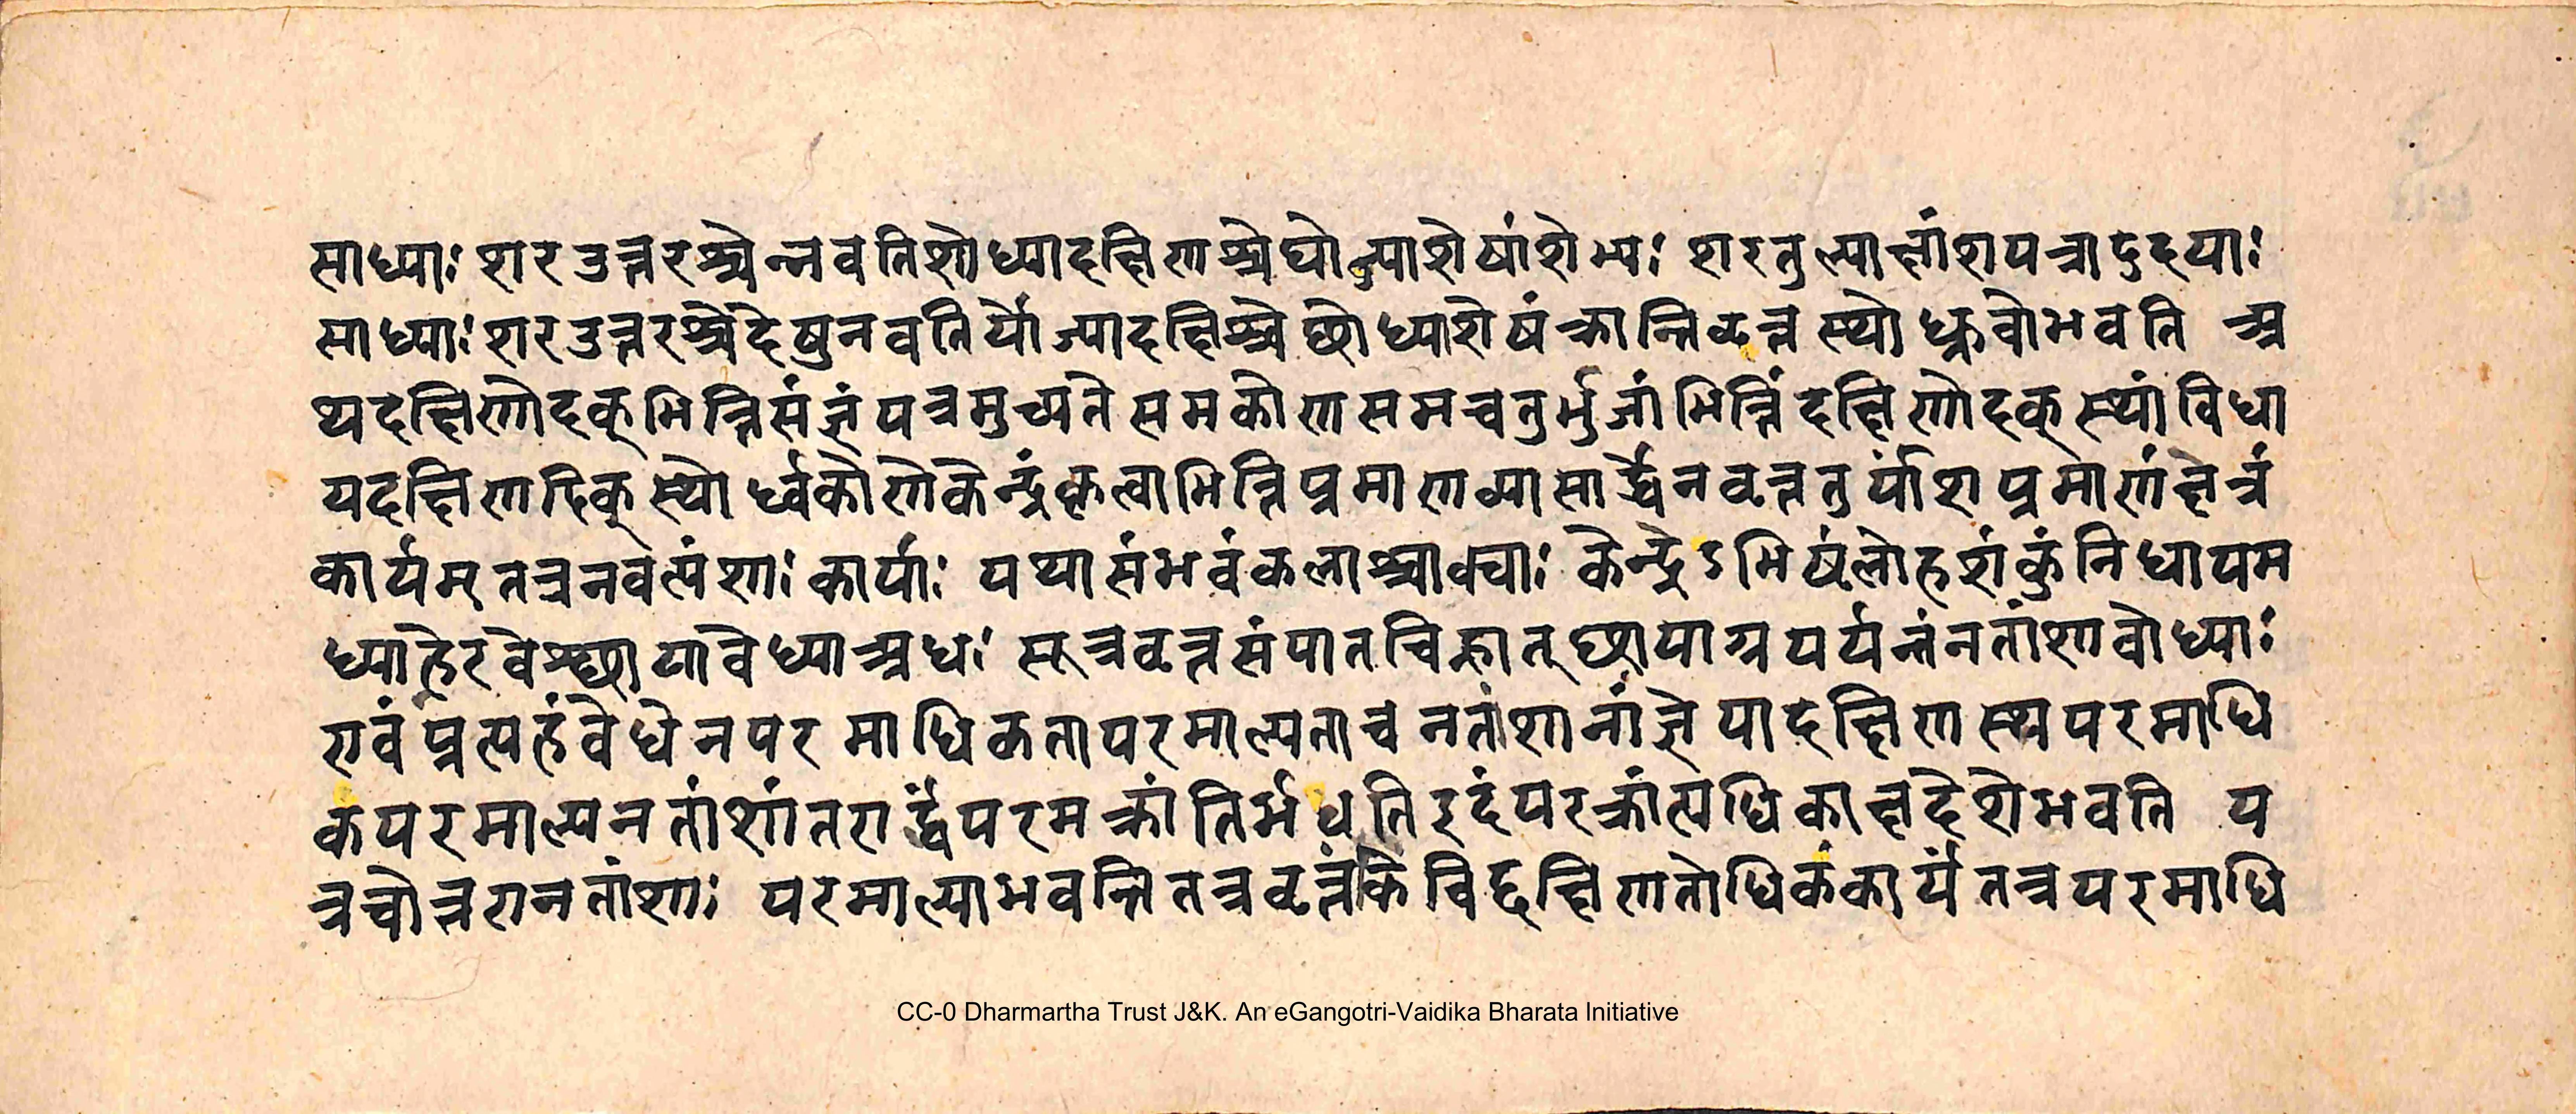 साध्याः शरउत्तरश्चेन्नवतिशोध्यादक्षिणश्चेद्योज्याशेषांशेभ्यः शरतुल्याक्षांशपत्रादुदयाः
साध्याः शरउत्तरश्चेदेषुनवतिर्योज्यादक्षिश्चेछोध्याशेषंक्रान्तिवृत्तस्थोध्रुवोभवति अ
थदक्षिणोदक्भित्तिसंज्ञंयन्त्रमुच्यते समकोणसमचतुर्भुजांभित्तिंदक्षिणोदक्स्थांविधा
यदक्षिणदिक्स्थोर्ध्वकोणेकेन्द्रंकृत्वाभित्तिप्रमाणव्यासार्द्धेनवृत्ततुर्यांशप्रमाणंक्षेत्रं
कार्यम् तत्रनवत्यंशाः कार्याः यथासंभवंकलाश्चाक्याः केन्द्रेऽभिष्टंलोहशंकुंनिधायम
ध्याह्नेरवेश्छायावेध्याअथ सूत्रवृत्तसंपातचिह्नात् छायाग्रपर्यन्तंनतांशावोध्याः
एवंप्रत्यहंवेधेनपरमाधिकतापरमाल्पताच नतांशानांज्ञेयादक्षिणस्थपरमाधि
कपरमाल्पनतांशांतरार्द्धंपरमक्रांतिर्भवति इदंपरक्रांत्यधिकाक्षदेशेभवति य
त्रचोत्तरानतांशाः परमाल्पाभवन्तितत्रवृत्तंकिंचिद्दक्षिणतोधिकंकार्यं तत्रपरमाधि
CC-0 Dharmartha Trust J&K. An eGangotri-Vaidika Bharata Initiative